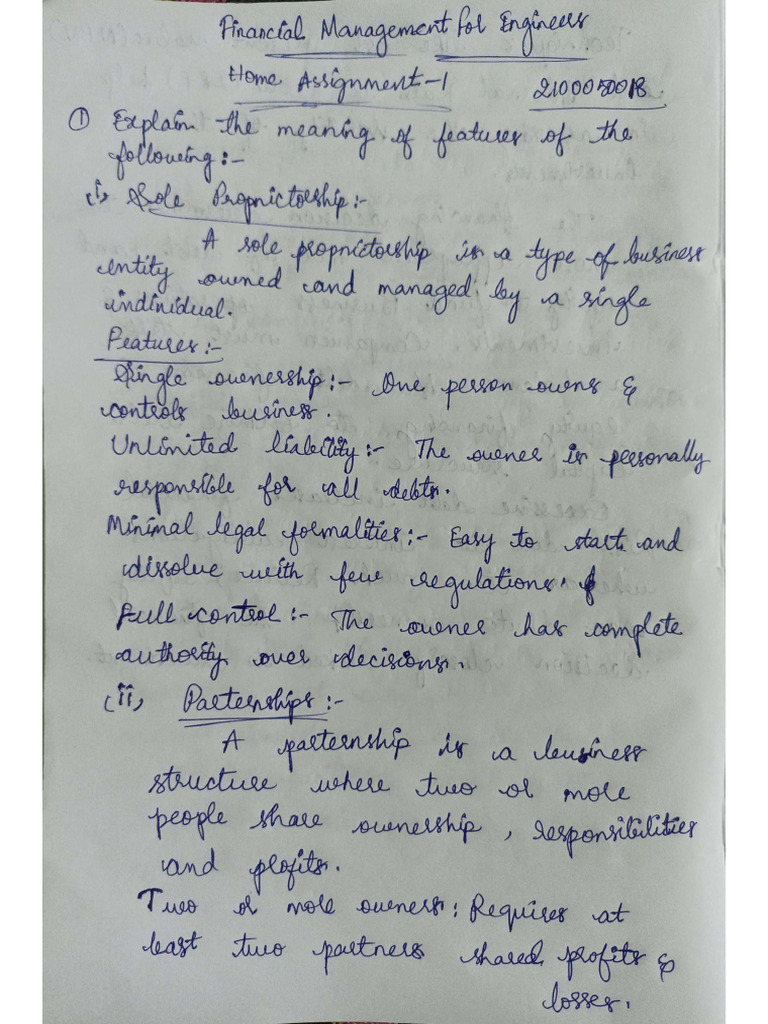 Financial Management for Engineers
Home Assignment-1
2100050018
① Explain the meaning of features of the
following:-
(i) Sole Propnictorship:-
A sole propnictorship is a type of business
entity owned and managed by a single
individual.
Features:-
Single ownership:- One person owns &
controls business.
Unlimited liability:- The owner is personally
responsible for all debts.
Minimal legal formalities:- Easy to start and
dissolve with few regulations.
Full control:- The owner has complete
authority over decisions.
(ii) Parternships:-
A parternship is a business
structure where two or more
people share ownership, responsibilities
and profits.
Two or more owners: Requires at
least two partners shared profits &
losses.